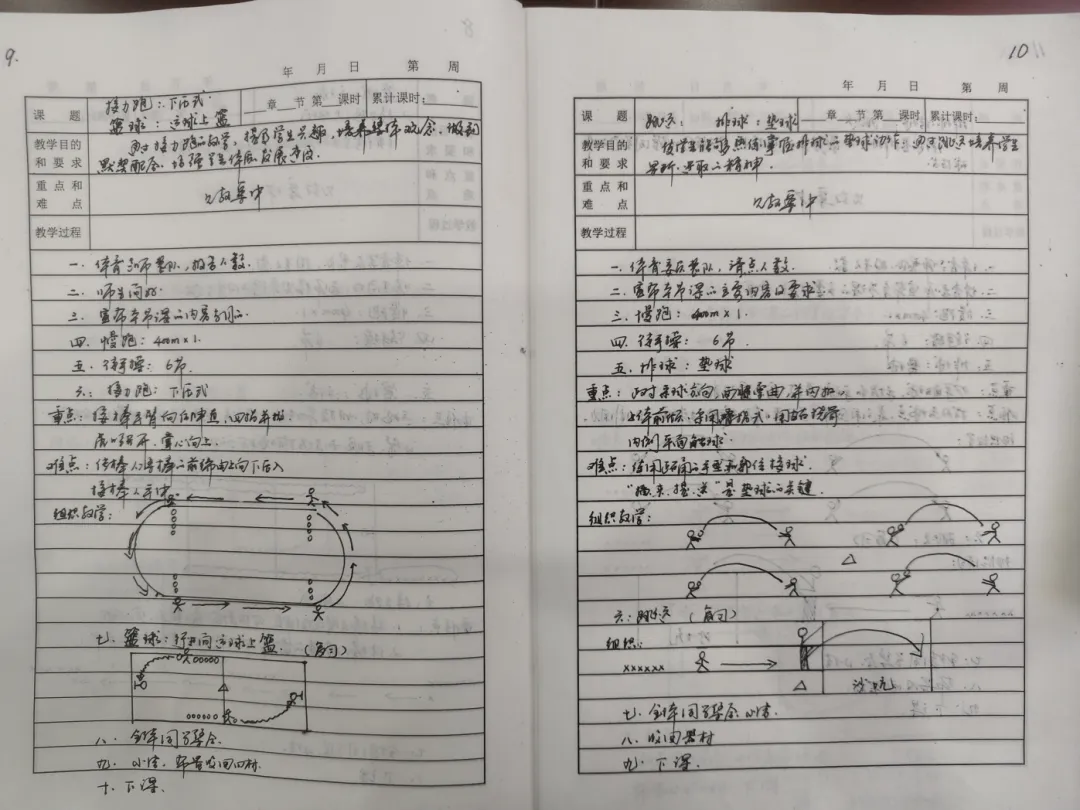 9.
年 月 日 第 周
课 题
接力跑:下压式
篮球:运球上篮
章 节第 课时
累计课时:
教学目的和要求
通过接力跑的教学,提高学生兴趣,培养集体观念,做到
默契配合,培养学生体质发展速度。
重点和难点
教学过程
一、体育 整队,报告人数。
二、师生问好
三、宣布本节课的内容
四、慢跑:400m×1.
五、徒手操:6节
六、接力跑:下压式
重点:接棒手臂向后伸直,四指并拢
虎口张开,掌心向上。
难点:传棒人将棒的前端由上向下压入
接棒人手中
组织教学:
七、篮球:行进间运球上篮.(复习)
八、全体同学集合.
九、小结,
十、下课.
10
年 月 日 第 周
课 题
跳远: 排球:垫球
章 节第 课时
累计课时:
教学目的和要求
使学生能够熟练掌握排球的垫球动作,通过跳远培养学生
果断、进取的精神.
重点和难点
教学过程
一、体育委员整队,清点人数.
二、宣布本节课的主要内容及要求
三、慢跑:400m×1.
四、徒手操:6节
五、排球:垫球
重点:
上体前倾
内侧平面触球.
难点:
击球.
是垫球的关键.
组织教学:
六、跳远 (复习)
组织:
xxxxxx
沙坑
七、全体同学集合,小结.
八、收回器材
九、下课.